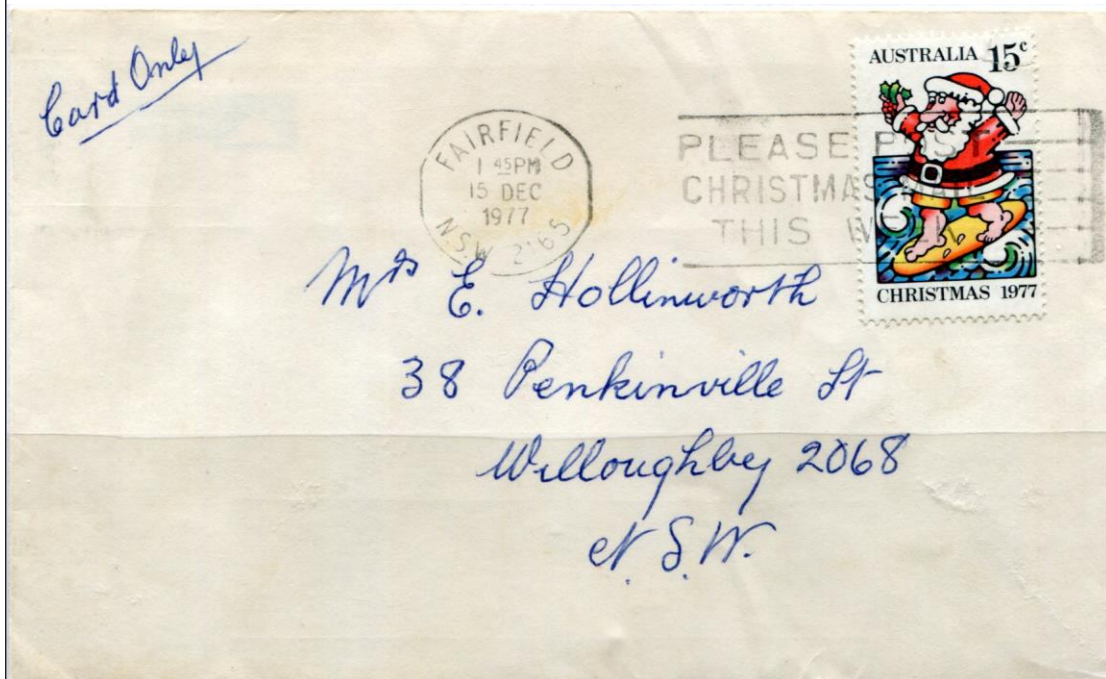 Card Only
AUSTRALIA 15c
FAIRFIELD
1 45PM
15 DEC
1977
NSW 2165
PLEASE POST
CHRISTMAS MAIL
THIS WEEK
CHRISTMAS 1977
Mrs E. Hollinworth
38 Penkinville St
Willoughby 2068
N.S.W.